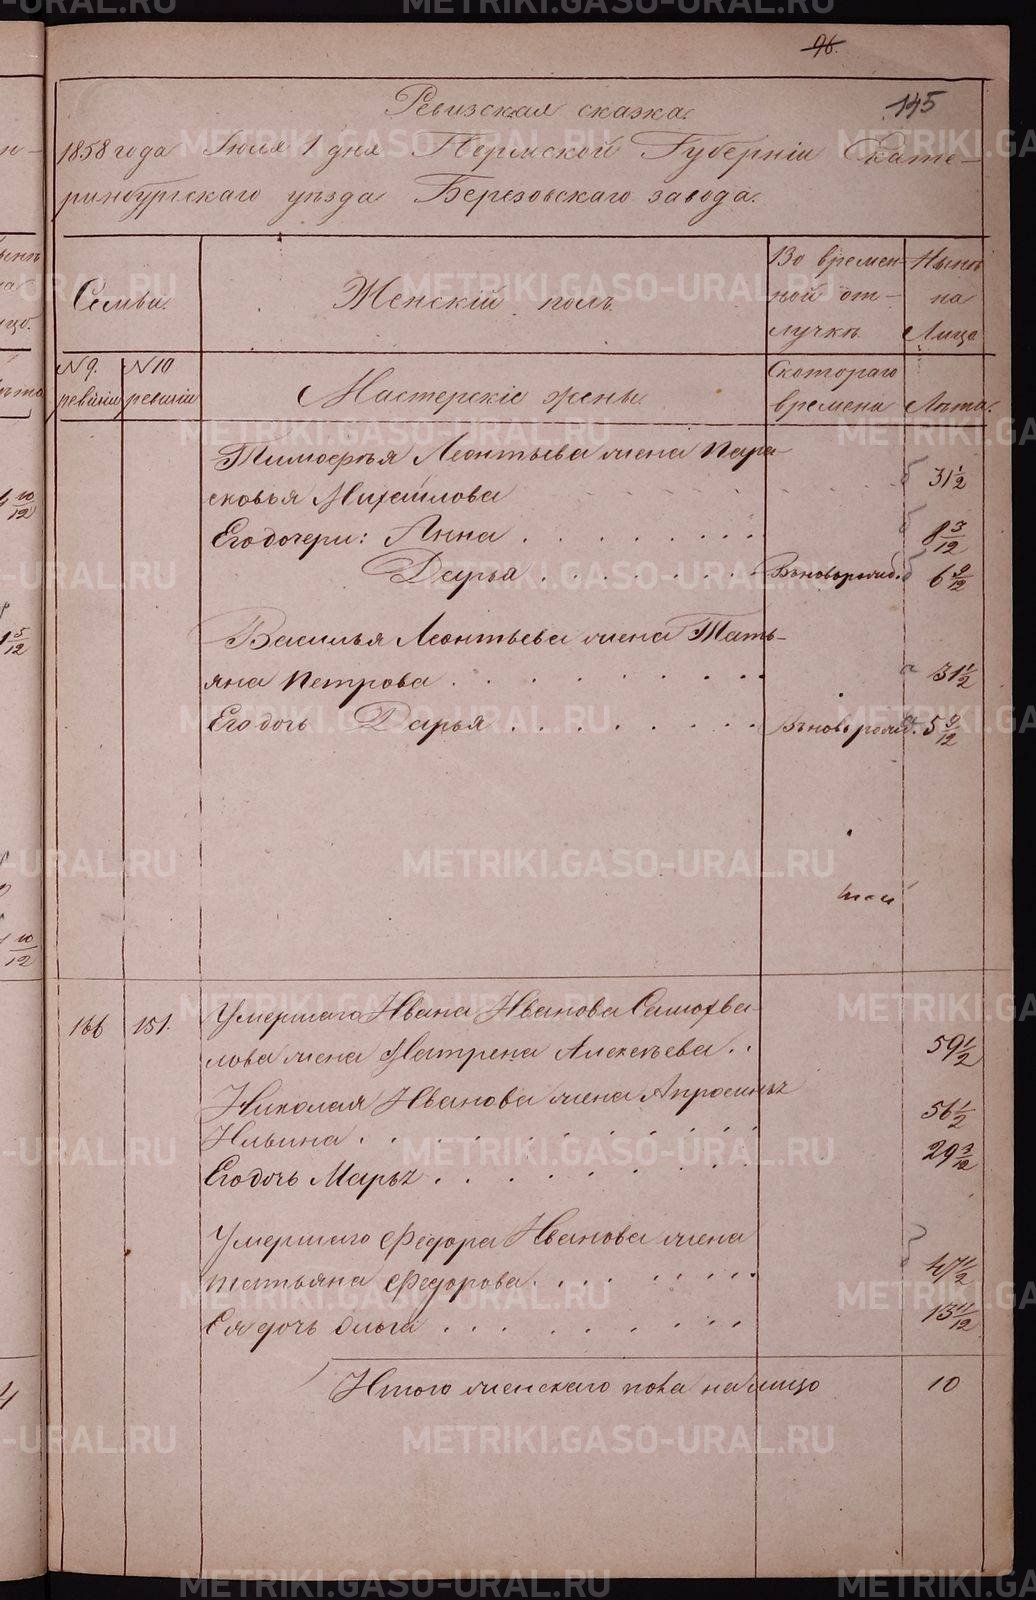 96.
145
Ревизская сказка
1858 года Июля 1 дня Пермской Губерніи Екате-
ринбургскаго уѣзда Березовскаго завода.
Семьи.
Женскій полъ.
Во времен-
ной от-
лучкѣ
Нынѣ
на
Лицо
N 9.
ревизіи
N 10
ревизіи
Мастерскіе жены.
Скотораго
времени
Лѣта.
Тимофѣя Леонтьева жена Пара-
сковья Михайлова 31 1/2
Его дочери: Анна 8 3/12
Дарья Вновьрожд. 6 9/12
Василья Леонтьева жена Тать-
яна Петрова 31 1/2
Его дочь Дарья Вновьрожд. 5 9/12
166 151. Умершаго Ивана Иванова Самохва-
лова жена Матрена Алексѣева 59 1/2
Николая Иванова жена Апросинья
Ильина 56 1/2
Его дочь Марья 29 3/12
Умершаго Федора Иванова жена
Татьяна Федорова 47 1/2
Ея дочь Ольга 13 11/12
Итого женскаго пола на лицо 10
METRIKI.GASO-URAL.RU